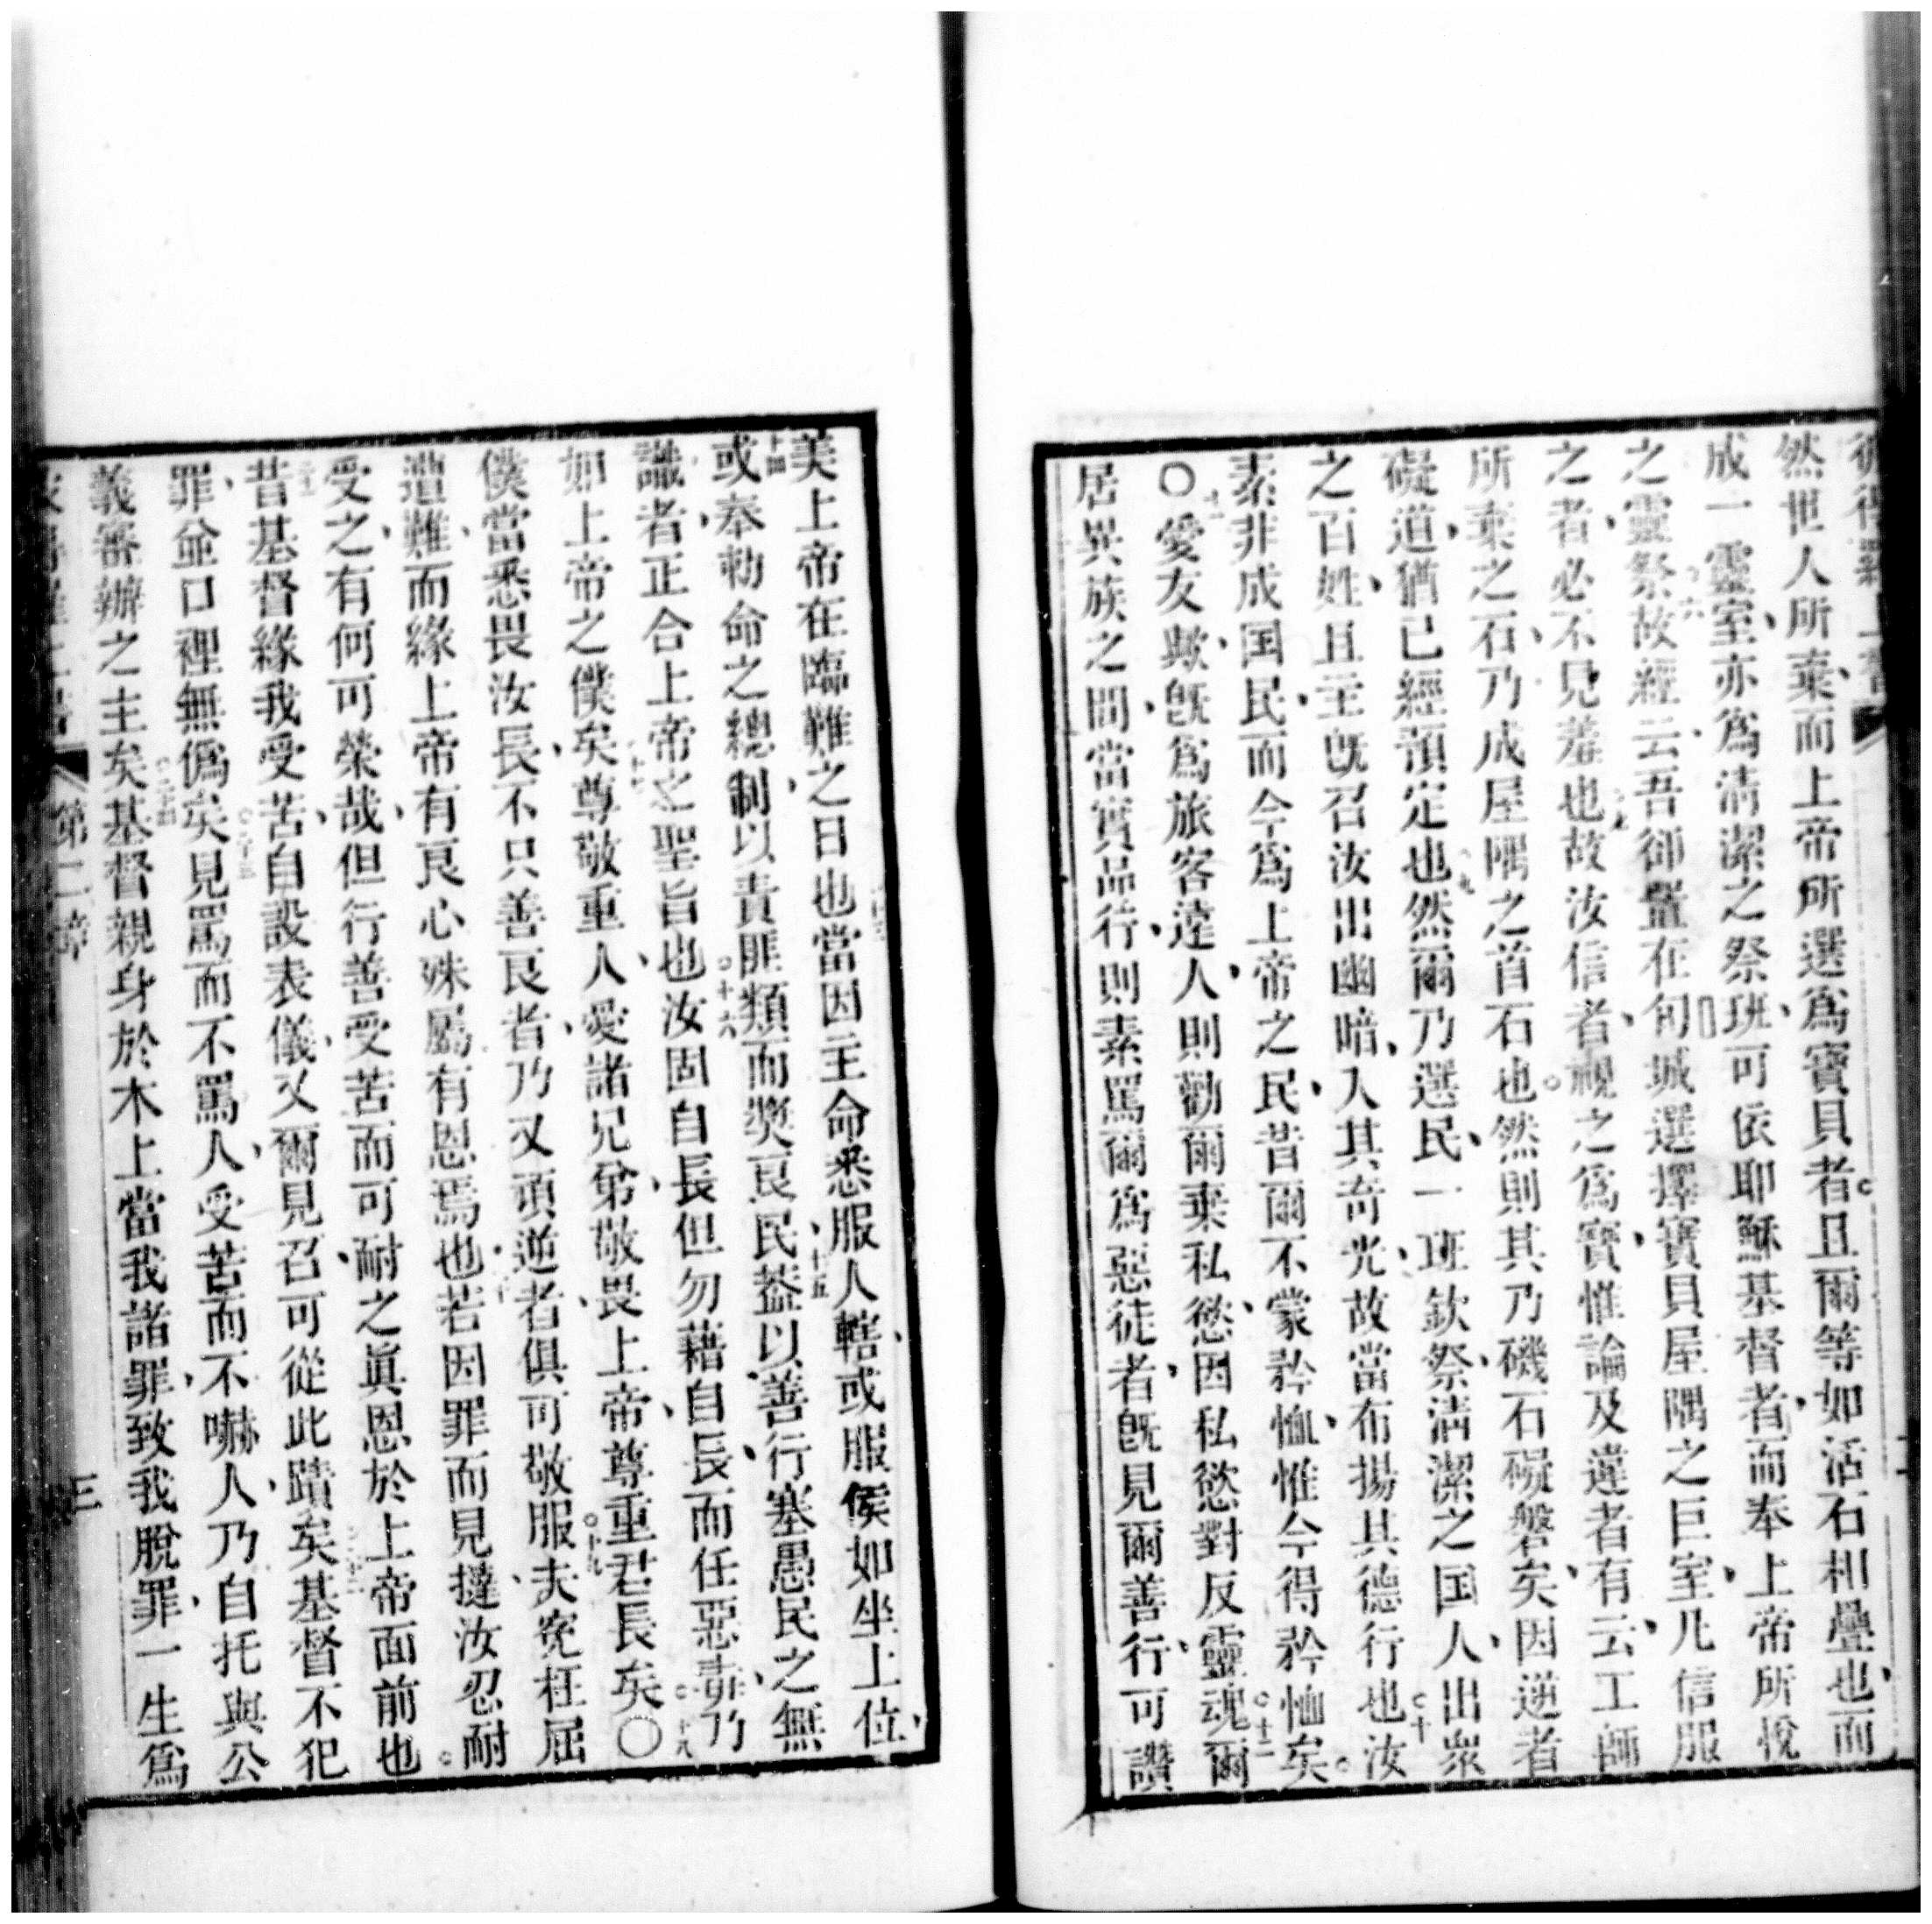 彼得羅上書
然世人所棄而上帝所選爲寶貝者且爾等如活石相壘也而
成一靈室亦爲清潔之祭班可依耶穌基督者而奉上帝所悅
之靈祭六故經云吾卻豎在旬城選擇寶貝屋隅之巨室凡信服
之者必不見羞也七故汝信者視之爲寶惟論及違者有云工師
所棄之石乃成屋隅之首石也然則其乃磯石礙磐矣因逆者
礙道猶已經預定也九然爾乃選民一班欽祭清潔之国人出眾
之百姓且主旣召汝出幽暗入其奇光故當布揚其德行也十汝
素非成国民而今爲上帝之民昔爾不蒙矜恤惟今得矜恤矣
〇十一愛友歟旣爲旅客遠人則勸爾棄私慾因私慾對反靈魂十二爾
居異族之間當實品行則素罵爾爲惡徒者旣見爾善行可讚
美上帝在臨難之日也當因主命悉服人轄或服侯如坐上位
十四或奉勅命之總制以責匪類而獎良民十五葢以善行塞愚民之無
識者正合上帝之聖旨也十六汝固自長但勿藉自長而任惡毒乃
如上帝之僕矣十七尊敬重人愛諸兄弟敬畏上帝尊重君長矣〇十八
僕當悉畏汝長不只善良者乃又頑逆者俱可敬服十九夫寃枉屈
遭難而緣上帝有良心殊屬有恩焉也二十若因罪而見撻汝忍耐
受之有何可榮哉但行善受苦而可耐之眞恩於上帝面前也
二十一昔基督緣我受苦自設表儀又爾見召可從此蹟矣二十二基督不犯
罪並口裡無僞矣二十三見罵而不罵人受苦而不嚇人乃自托與公
義審辦之主矣二十四基督親身於木上當我諸罪致我脫罪一生爲
彼得羅上書 第二章 三